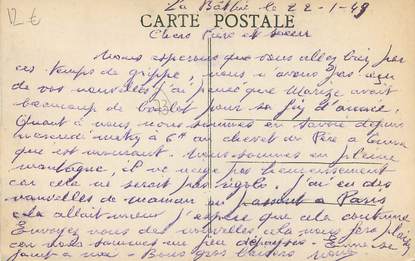 12 €
La Bâthie le 22-1-49
CARTE POSTALE
Chers Père et soeur
Nous espérons que vous allez bien par
ces temps de grippe, nous n'avons pas eu
de vos nouvelles j'ai pensé que avait
beaucoup de boulot pour sa fin d'année.
Quant à nous nous sommes en Savoie depuis
mercredi à au chevet du Père à
qui est mourant. Nous sommes en pleine
montagne, il ne neige pas heureusement
car cela ne serait pas rigolo. J'ai eu des
nouvelles de maman en passant à Paris
cela allait mieux j'espère que cela continue
Envoyez nous des nouvelles cela nous fera plaisir
car nous sommes un peu dépaysés. se
joint à moi - Bons gros baisers